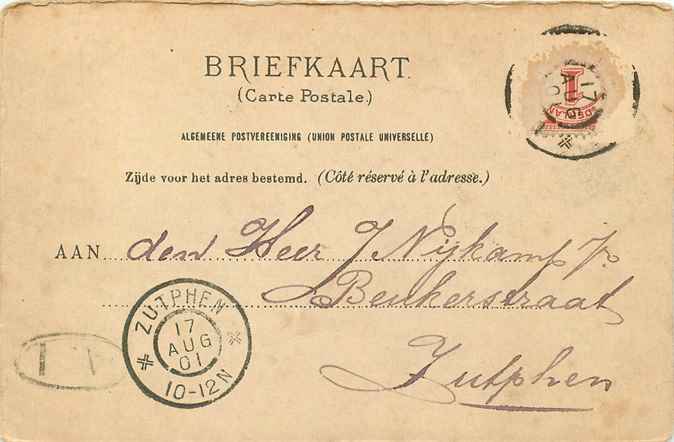 BRIEFKAART.
(Carte Postale.)
ALGEMEENE POSTVEREENIGING (UNION POSTALE UNIVERSELLE)
Zijde voor het adres bestemd. (Côté réservé à l'adresse.)
AAN den Heer J. Nijkamp Jr.
Beukerstraat
Zutphen
ZUTPHEN
17
AUG
01
10-12N
17
AUG
1